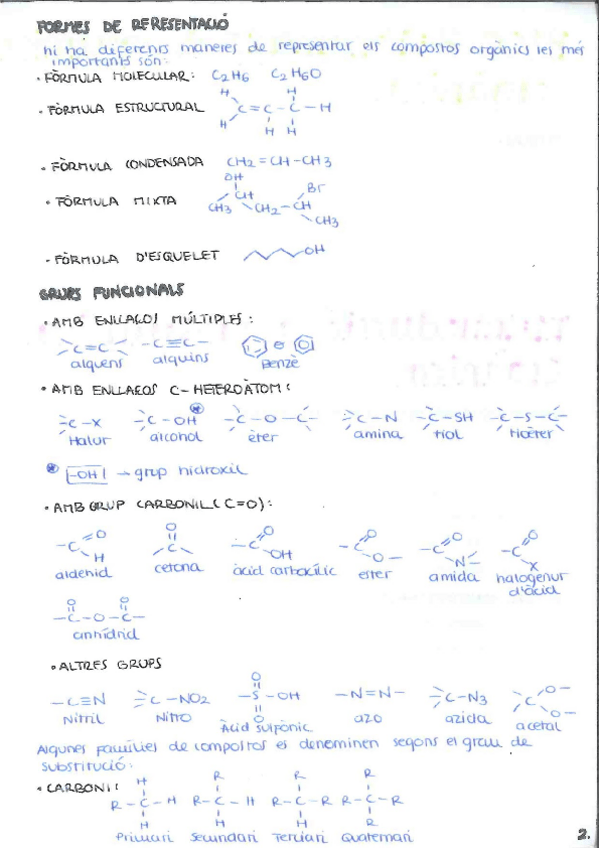 FORMES DE REPRESENTACIÓ
hi ha diferents maneres de representar els compostos orgànics les més
importants són:
· FÓRMULA MOLECULAR: C2H6 C2H6O
· FÓRMULA ESTRUCTURAL
H H
C=C-C-H
H H H
· FÓRMULA CONDENSADA CH2=CH-CH3
· FÓRMULA MIXTA
OH
CH Br
CH3 CH2-CH
CH3
· FÓRMULA D'ESQUELET OH
GRUPS FUNCIONALS
· AMB ENLLAÇOS MÚLTIPLES:
C=C -C≡C- o
alquens alquins Benzè
· AMB ENLLAÇOS C-HETEROÀTOM:
C-X C-OH* C-O-C C-N C-SH C-S-C
Halur alcohol èter amina tiol tioèter
* -OH → grup hidroxil
· AMB GRUP CARBONIL (C=O):
-C O H
C O
-C O OH
C O O-
C O N-
-C O X
aldehid cetona àcid carboxílic ester amida halogenur
d'àcid
O O
-C-O-C-
anhídrid
· ALTRES GRUPS
-C≡N C-NO2 O -S-OH O -N=N- C-N3 C O- O-
Nitril Nitro Àcid sulfònic azo azida acetal
Algunes famílies de compostos es denominen segons el grau de
substitució:
· CARBONI:
H R R R
R-C-H R-C-H R-C-R R-C-R
H H H R
Primari Secundari Terciari Quaternari
2.